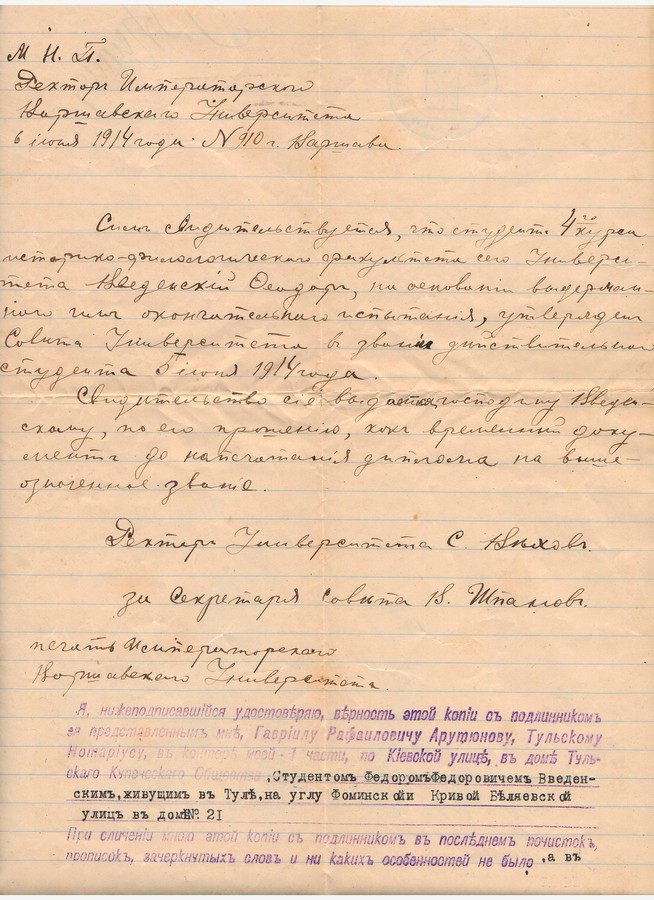 М. Н. П.
Ректоръ Императорскаго
Варшавскаго Университета
6 іюня 1914 года. N 910 г. Варшава.
Симъ свидѣтельствуется, что студентъ 4го курса
историко-филологическаго факультета сего Универси-
тета Введенскій Ѳеодоръ, на основаніи выдержан-
наго имъ окончательнаго испытанія, утвержденъ
Совѣтомъ Университета въ званіи дѣйствительнаго
студента 5 іюня 1914 года.
Свидѣтельство сіе выдается господину Введен-
скому, по его прошенію, какъ временный доку-
ментъ до напечатанія диплома на выше-
означенное званіе.
Ректоръ Университета С. Вѣховъ.
за Секретаря совѣта В. Шпаковъ.
печать Императорскаго
Варшавскаго Университета.
Я, нижеподписавшійся удостовѣряю, вѣрность этой копіи съ подлинникомъ
ея представленнымъ мнѣ, Гавріилу Рафаиловичу Арутюнову, Тульскому
Нотаріусу, въ конторѣ моей 1 части, по Кіевской улицѣ, въ домѣ Туль-
скаго Купеческаго Общества, Студентомъ ФедоромъФедоровичемъ Введен-
скимъ, живущимъ въ Тулѣ, на углу Фоминскойи Кривой Бѣляевской
улицъ въ домѣ№ 21
При сличеніи мною этой копіи съ подлинникомъ въ послѣднемъ почистокъ,
прописокъ, зачеркнутыхъ словъ и ни какихъ особенностей не было ,а въ